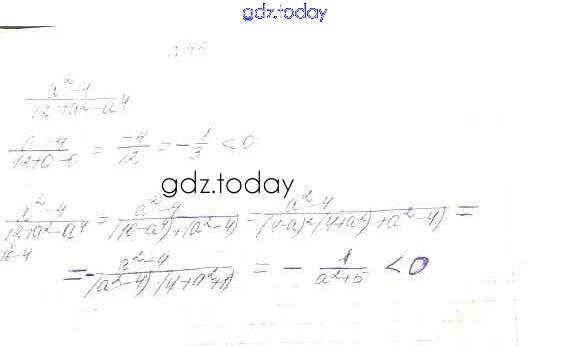 gdz.today
a²-4 / 12+a²-a⁴
0-4 / 12+0-0 = -4/12 = -1/3 < 0
gdz.today
a²-4 / 12+a²-a⁴ = a²-4 / (16-a⁴)+(a²-4) = a²-4 / (4-a)²(4+a²)+a²-4) =
16-4
= - a²-4 / (a²-4)·(4+a²+1) = - 1 / a²+5 < 0